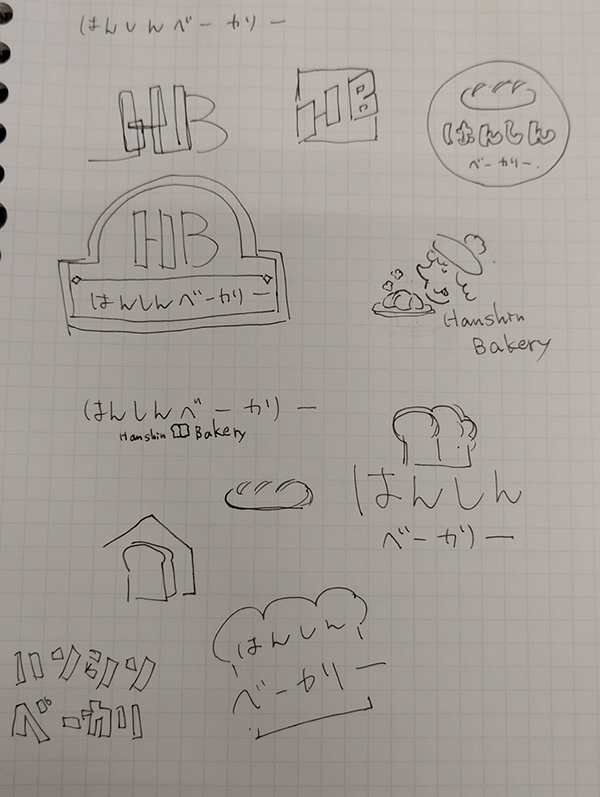 はんしんベーカリー
HB
HB
はんしん
ベーカリー
HB
はんしんベーカリー
Hanshin
Bakery
はんしんベーカリー
Hanshin Bakery
はんしん
ベーカリー
はんしん
ベーカリー
ハンシン
ベーカリ